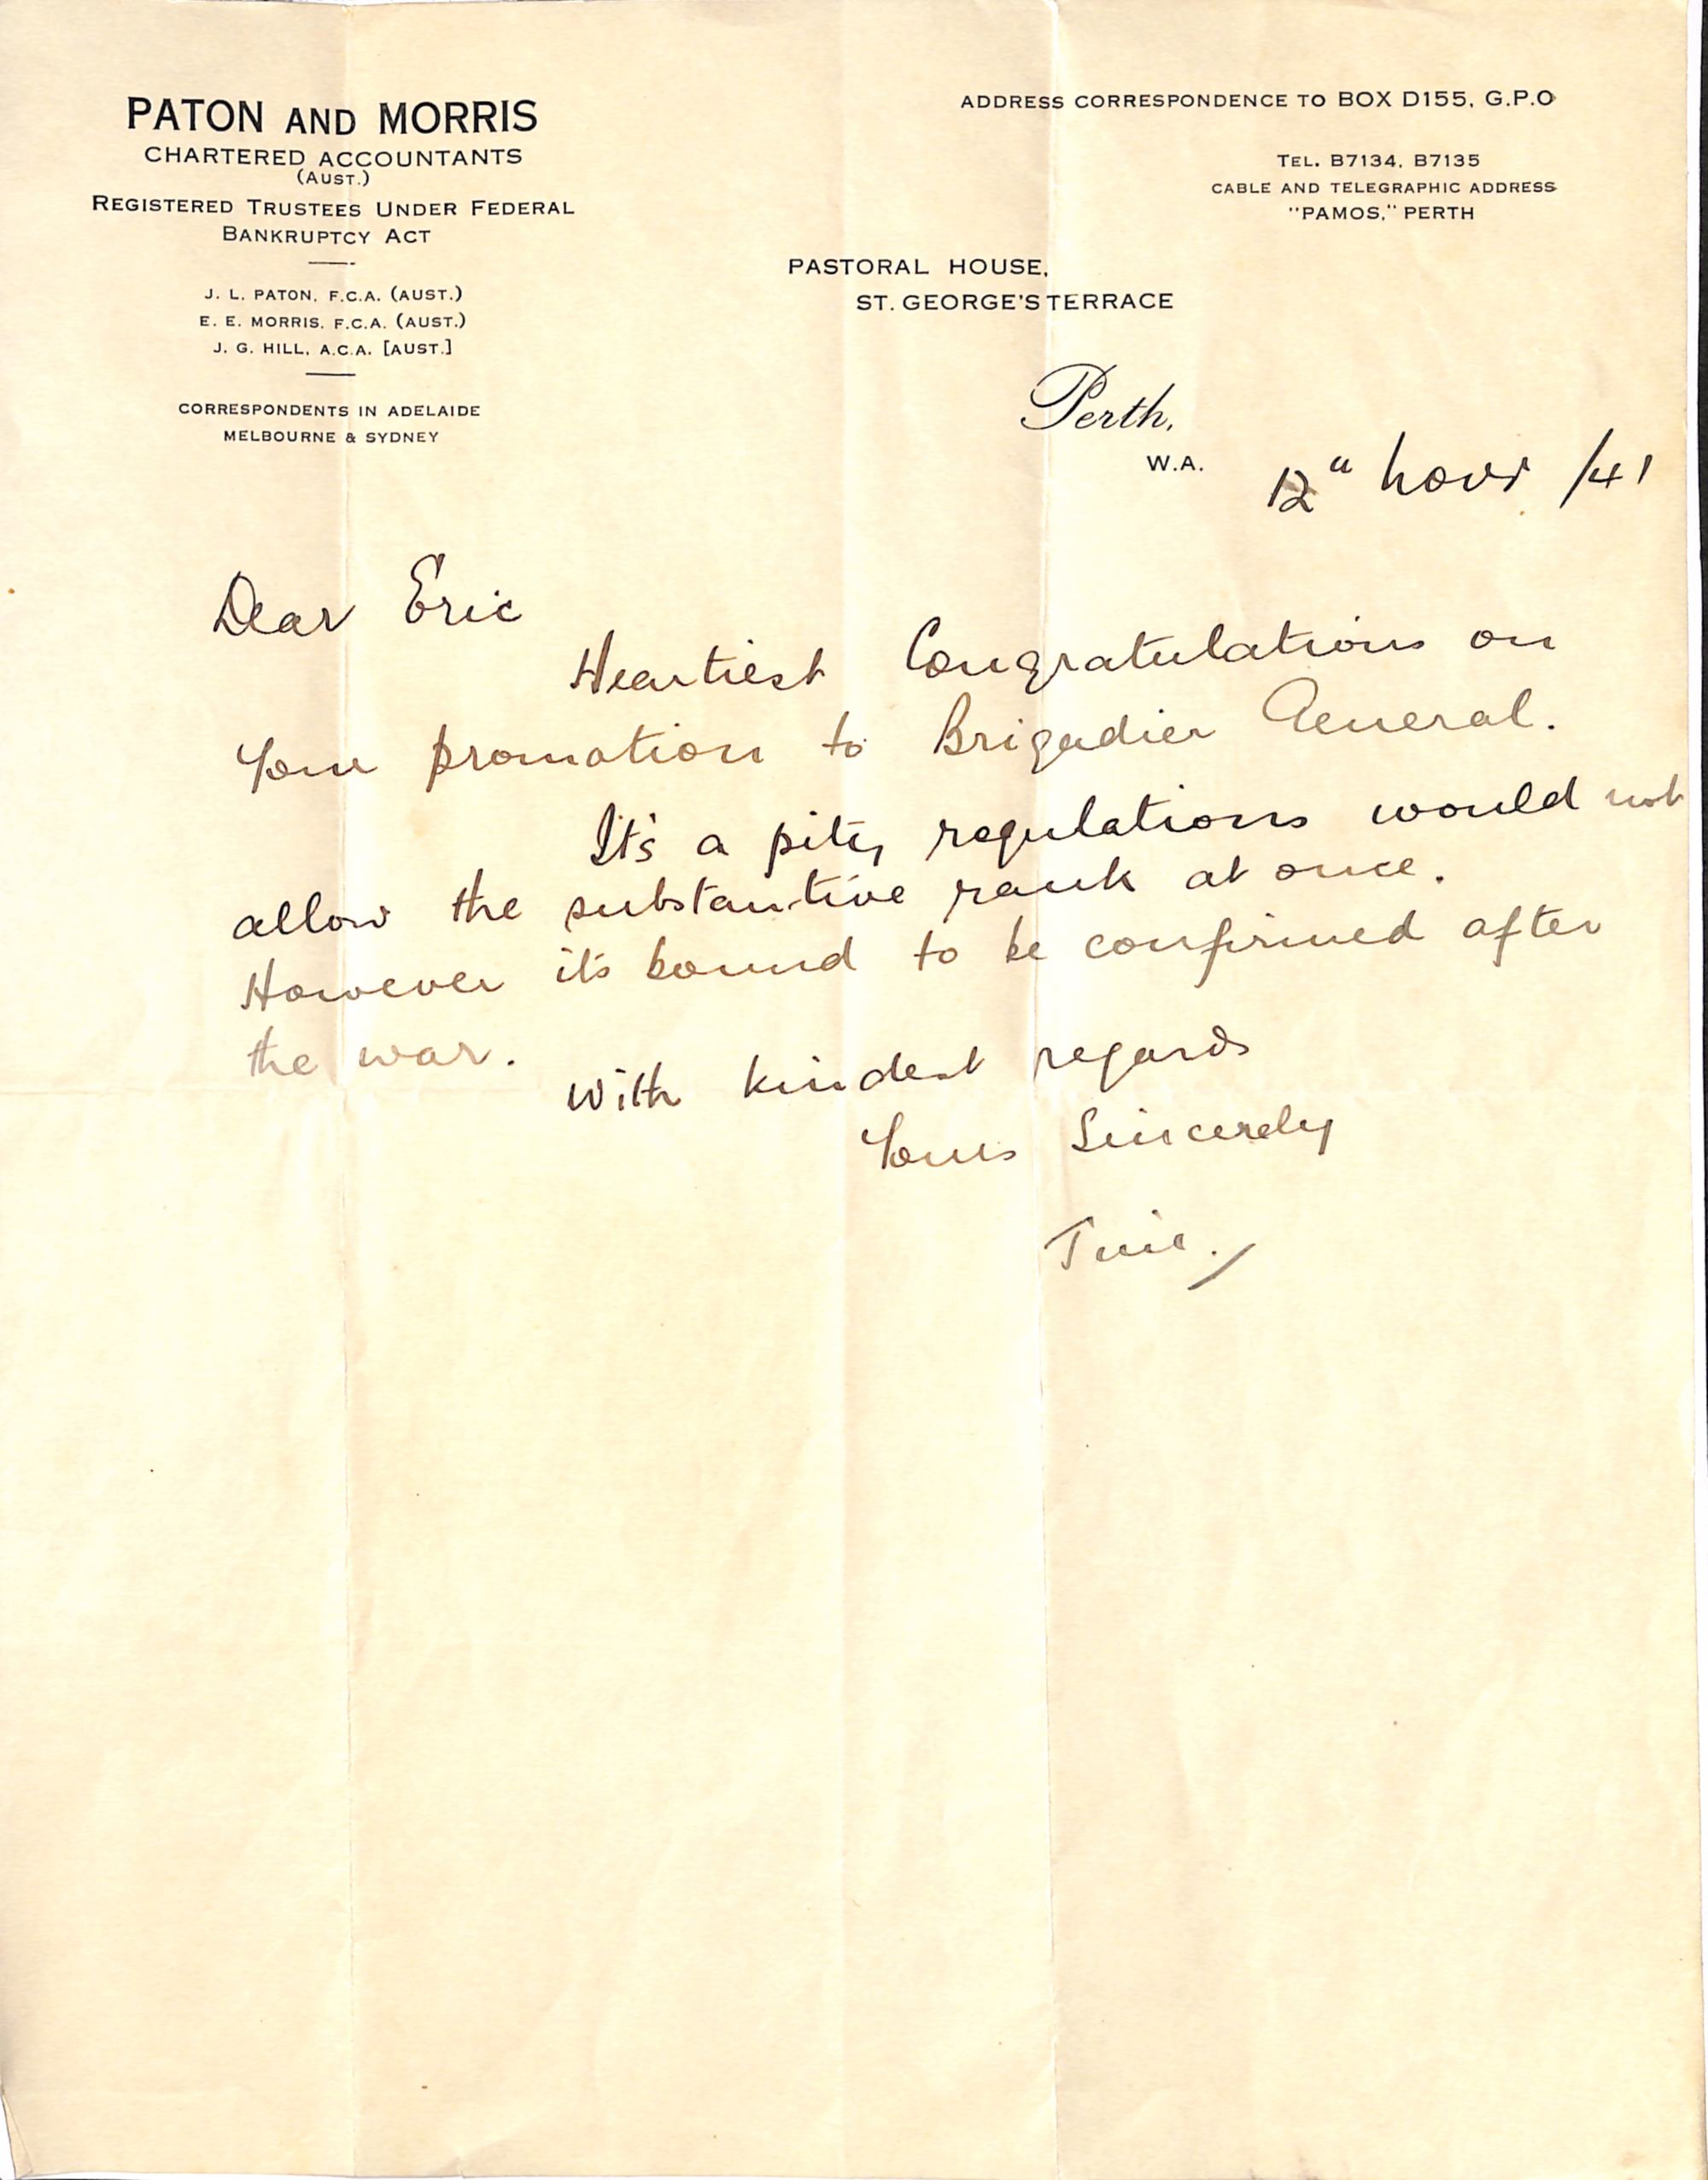 PATON AND MORRIS
CHARTERED ACCOUNTANTS
(AUST.)
REGISTERED TRUSTEES UNDER FEDERAL
BANKRUPTCY ACT
J. L. PATON, F.C.A. (AUST.)
E. E. MORRIS, F.C.A. (AUST.)
J. G. HILL, A.C.A. [AUST.]
CORRESPONDENTS IN ADELAIDE
MELBOURNE & SYDNEY
ADDRESS CORRESPONDENCE TO BOX D155, G.P.O
TEL. B7134, B7135
CABLE AND TELEGRAPHIC ADDRESS
"PAMOS," PERTH
PASTORAL HOUSE,
ST. GEORGE'S TERRACE
Perth,
W.A.
12" Novr /41
Dear Eric
Heartiest Congratulations on
Your promotion to Brigadier General.
It's a pity regulations would not
allow the substantive rank at once.
However it's bound to be confirmed after
the war.
With kindest regards
Yours Sincerely